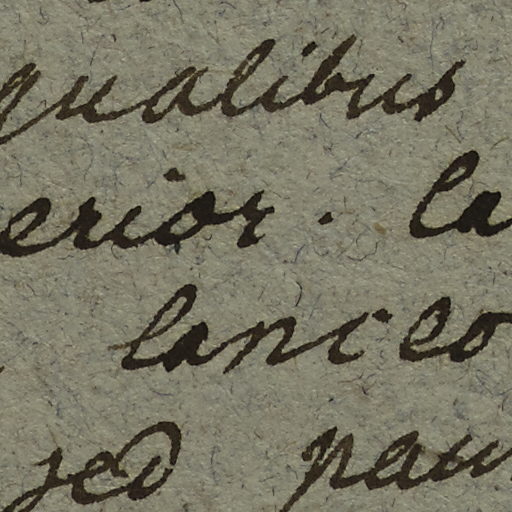 qualibus
erior. la
lanceo
sed pau